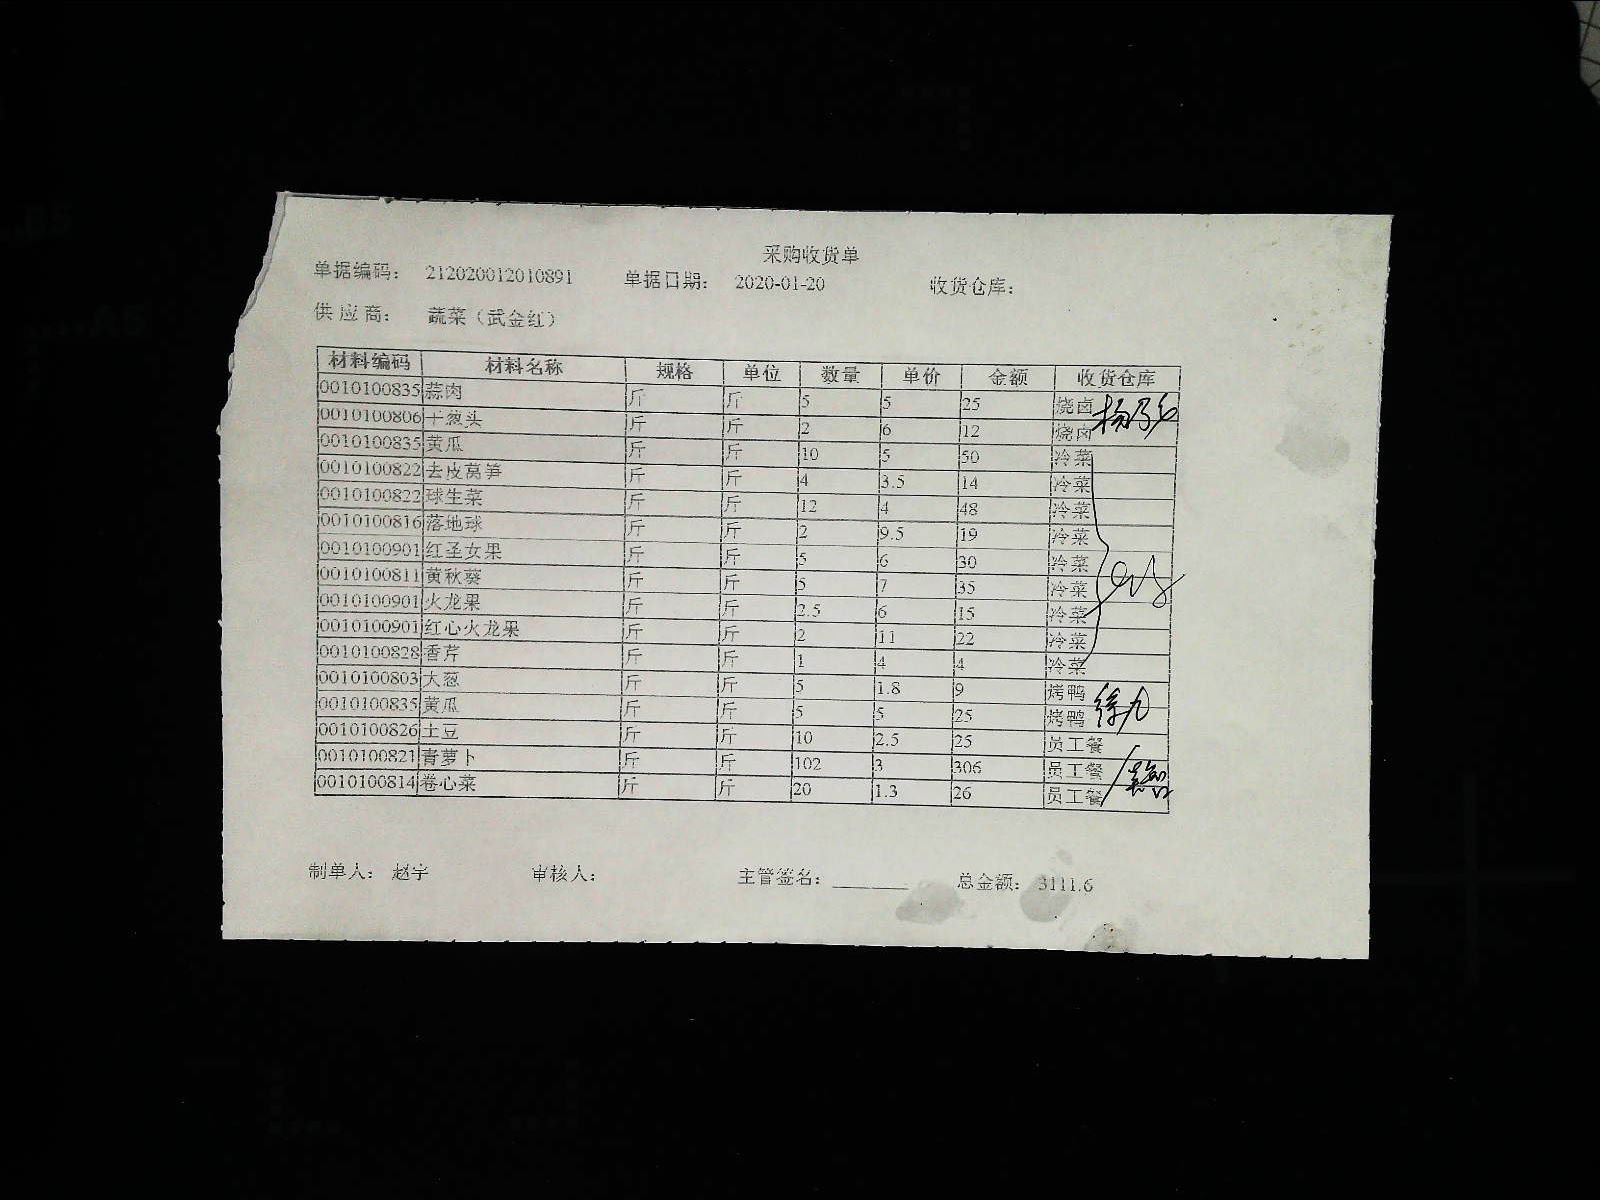 采购收货单
单据编码： 212020012010891 单据日期： 2020-01-20 收货仓库：
供 应 商： 蔬菜（武金红）
材料编码 材料名称 规格 单位 数量 单价 金额 收货仓库
0010100835 蒜肉 斤 斤 5 5 25 烧卤
0010100806 干葱头 斤 斤 2 6 12 烧卤
0010100835 黄瓜 斤 斤 10 5 50 冷菜
0010100822 去皮莴笋 斤 斤 4 3.5 14 冷菜
0010100822 球生菜 斤 斤 12 4 48 冷菜
0010100816 落地球 斤 斤 2 9.5 19 冷菜
0010100901 红圣女果 斤 斤 5 6 30 冷菜
0010100811 黄秋葵 斤 斤 5 7 35 冷菜
0010100901 火龙果 斤 斤 2.5 6 15 冷菜
0010100901 红心火龙果 斤 斤 2 11 22 冷菜
0010100828 香芹 斤 斤 1 4 4 冷菜
0010100803 大葱 斤 斤 5 1.8 9 烤鸭
0010100835 黄瓜 斤 斤 5 5 25 烤鸭
0010100826 土豆 斤 斤 10 2.5 25 员工餐
0010100821 青萝卜 斤 斤 102 3 306 员工餐
0010100814 卷心菜 斤 斤 20 1.3 26 员工餐
制单人： 赵宇 审核人： 主管签名： 总金额： 3111.6